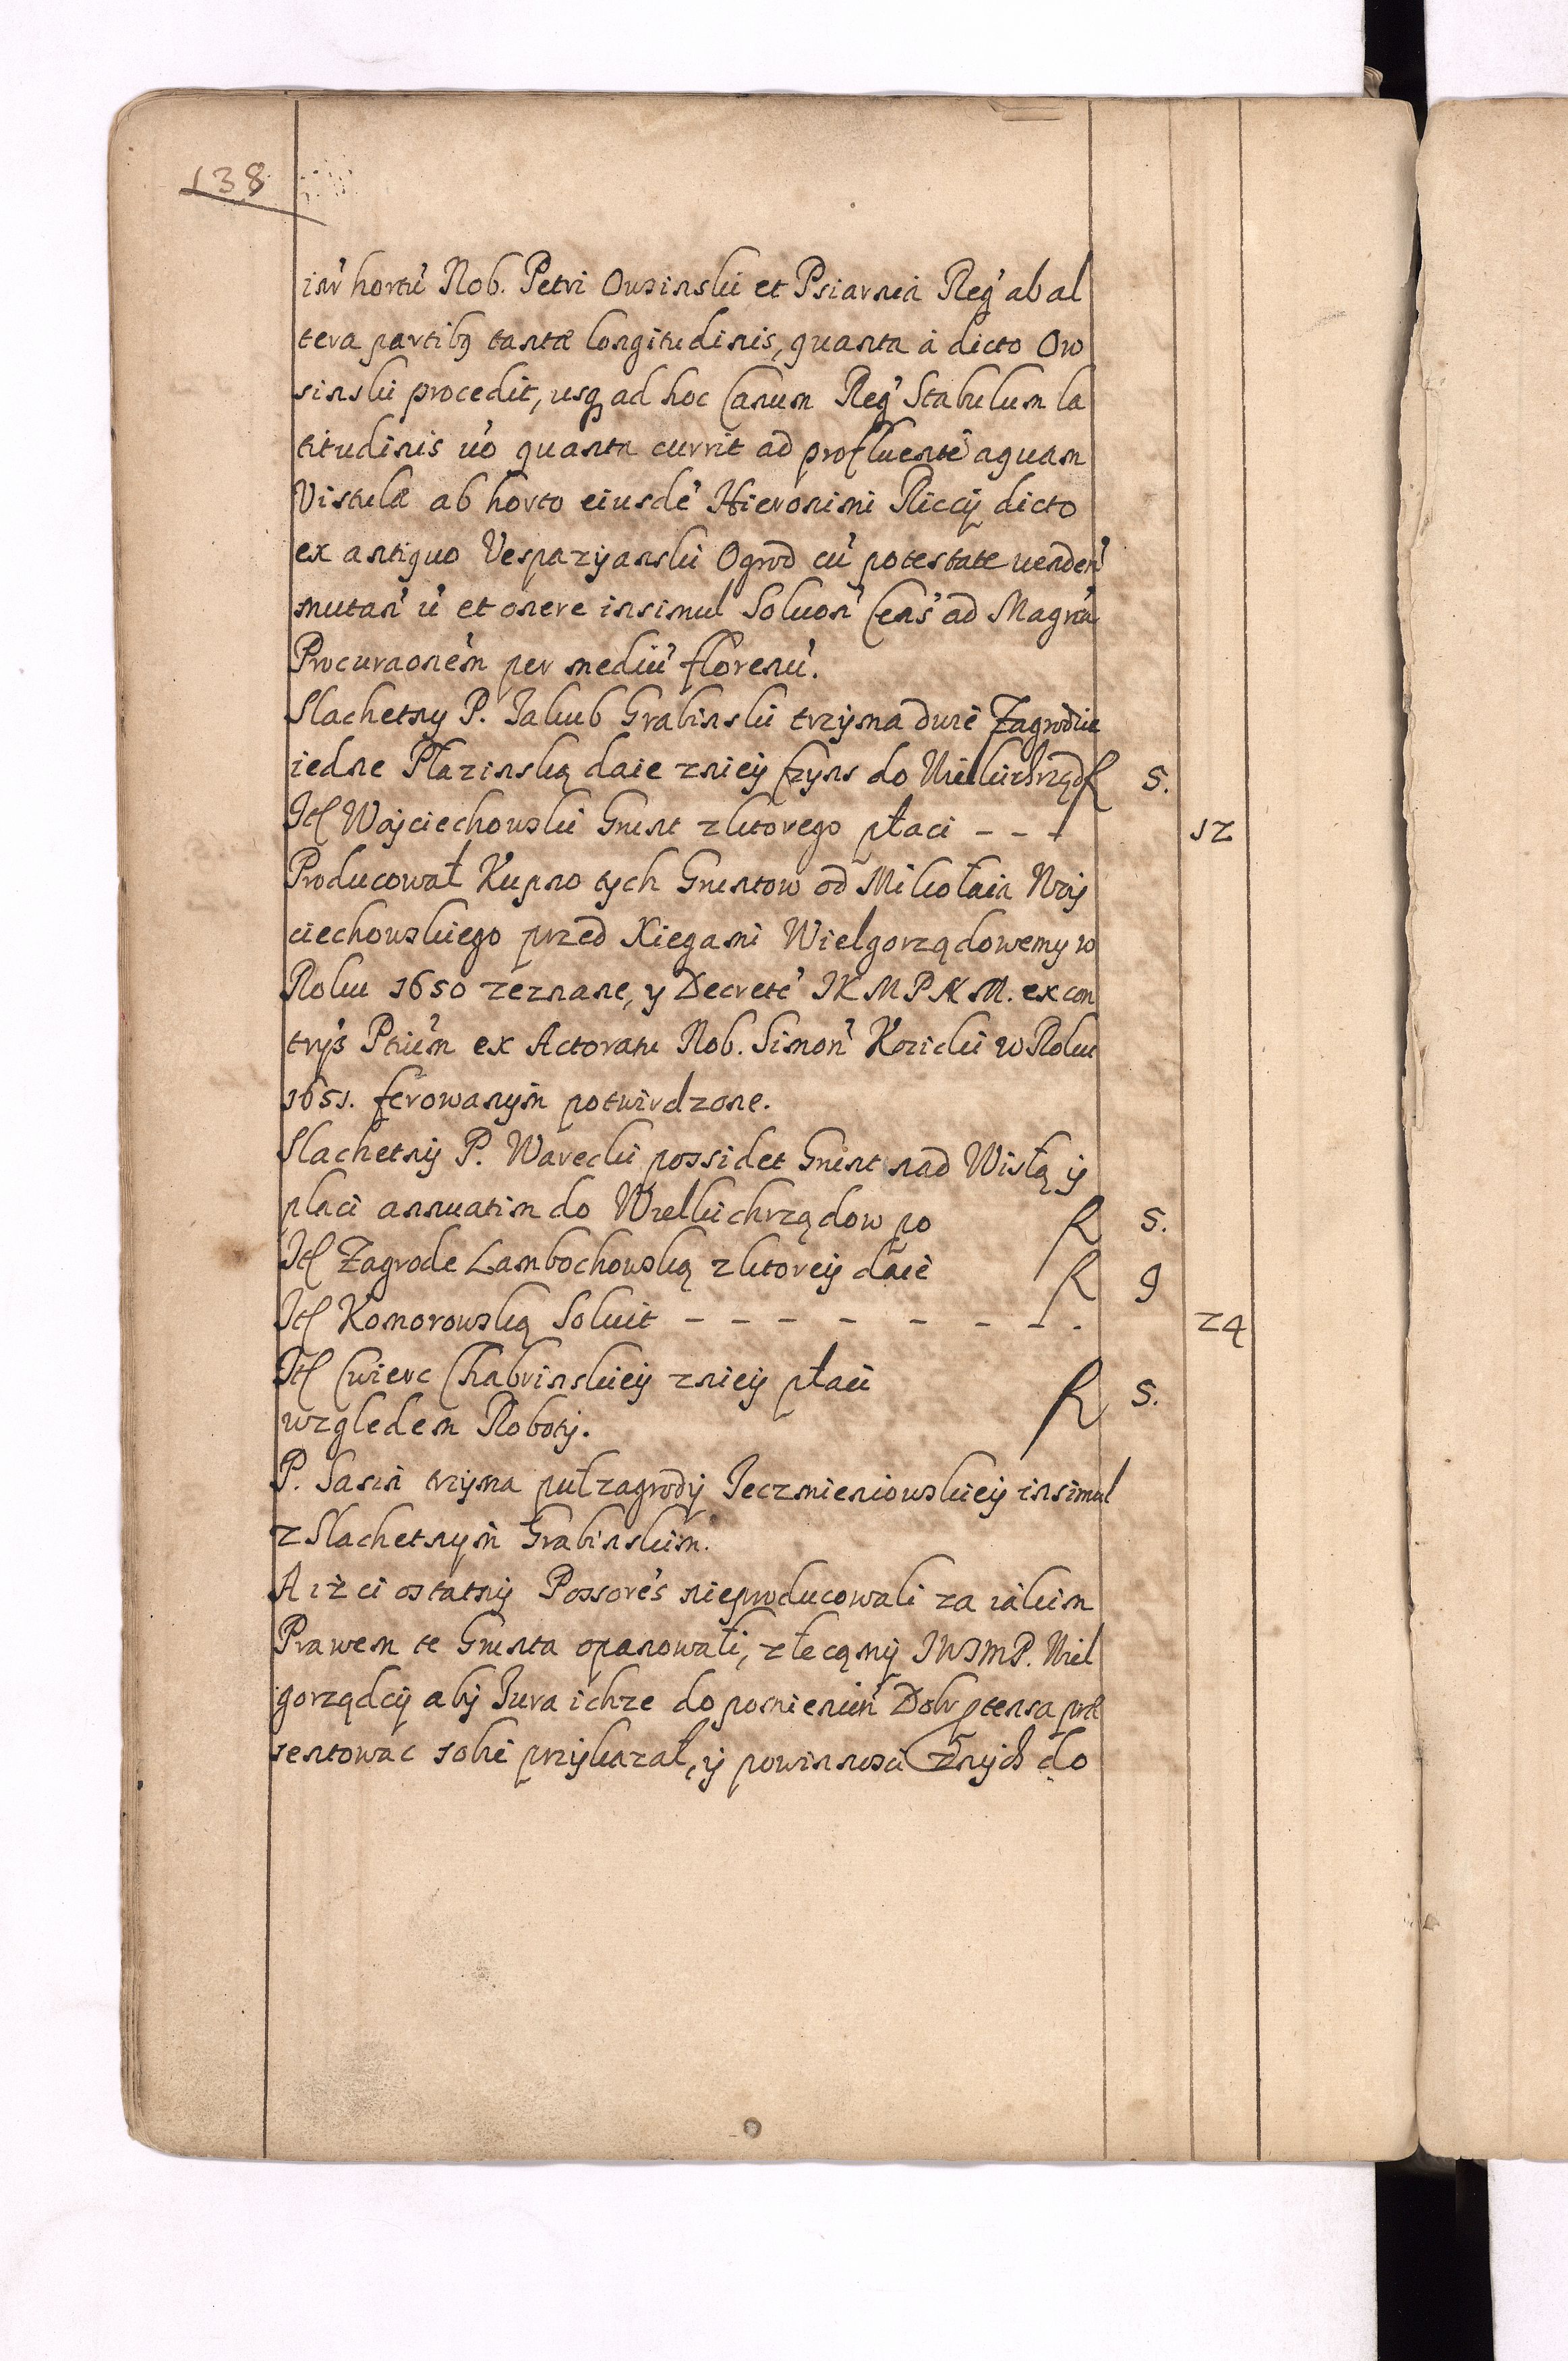 138
int' hortu' Nob. Petri Owsinski et Psiarnia Reg' ab al
tera partibq tantæ longitudinis, quanta à dicto Ow
sinski procedit, usq ad hoc Canum Reg' Stabulum la
titudinis uo' quanta currit ad profluente' aquam
Vistulæ ab horto eiusde' Hieronimi Riccij dicto
ex antiquo Vespazyanski Ogrod cu' potestate venden'
mutan' u' et onere insimul Soluon' Cens' ad Magn'a
Procuraone'm per mediu' florenu'.
Slachetny P. Jakub Grabinski trzyma dwie Zagrodie
iedne Płazinską daie zniey Czyns do Wielkichrząd fl 5.
It Wojciechowski Grunt zktorego płaci - - - 12
Producował Kupno tych Gruntow od Mikołaia Woy
ciechowskiego przed Xiegami Wielgorządowemy w
Roku 1650 zeznane, y Decrete' JKMPNM. ex con
trys' Ptiu'm ex Actoratu Nob. Simon' Kozicki w Roku
1651. ferowanym potwirdzone.
Slachetny P. Warecki possidet Grunt nad Wisłą y
płaci annuatim do Wielkichrządow po fl 5.
It Zagrode Lambochowską zktorey daie fl 9
It Komorowską Soluit - - - - - - - - 24
It Cwierc Chabrinskiey zniey płaci fl 5.
względem Roboty.
P. Sasin trzyma pułzagrody Jeczmieniowskiey insimul
z Slachetnym Grabinskim.
A iż ci ostatny Possore's nieproducowali za iakim
Prawem te Grunta opanowali, złecąmy JWJMP. Wiel
gorządcy aby Jura ichze do pomienion' Dobr ptensa præ
sentowac sobie przykazał, y powinnosci znych do